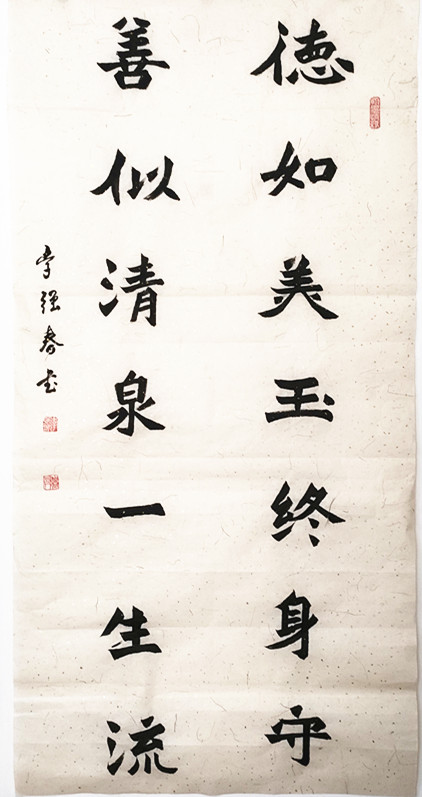 德如美玉终身守
善似清泉一生流
李强春书